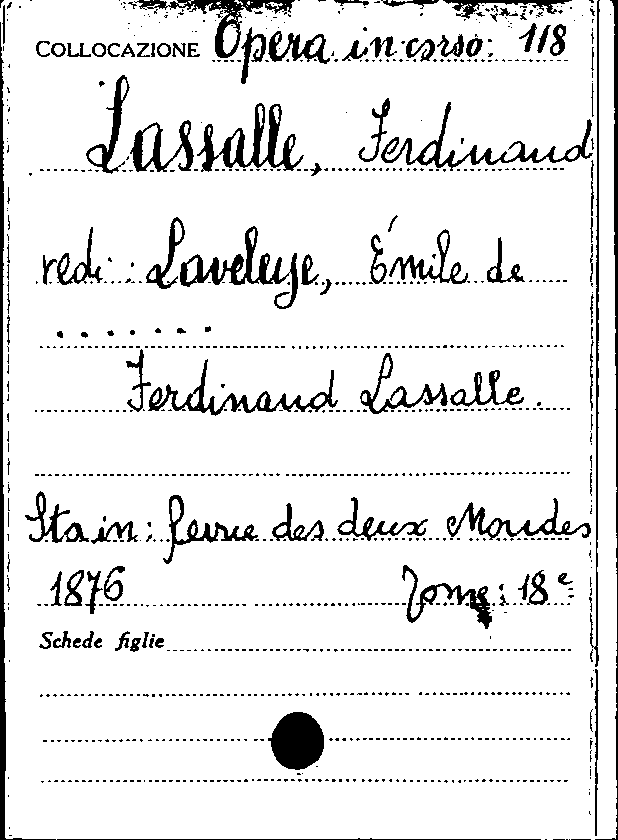 COLLOCAZIONE Opera in corso: 118
Lassalle, Ferdinand
vedi: Laveleye, Émile de
.......
Ferdinand Lassalle.
Sta in: Revue des deux Mondes
1876 Tome: 18e
Schede figlie